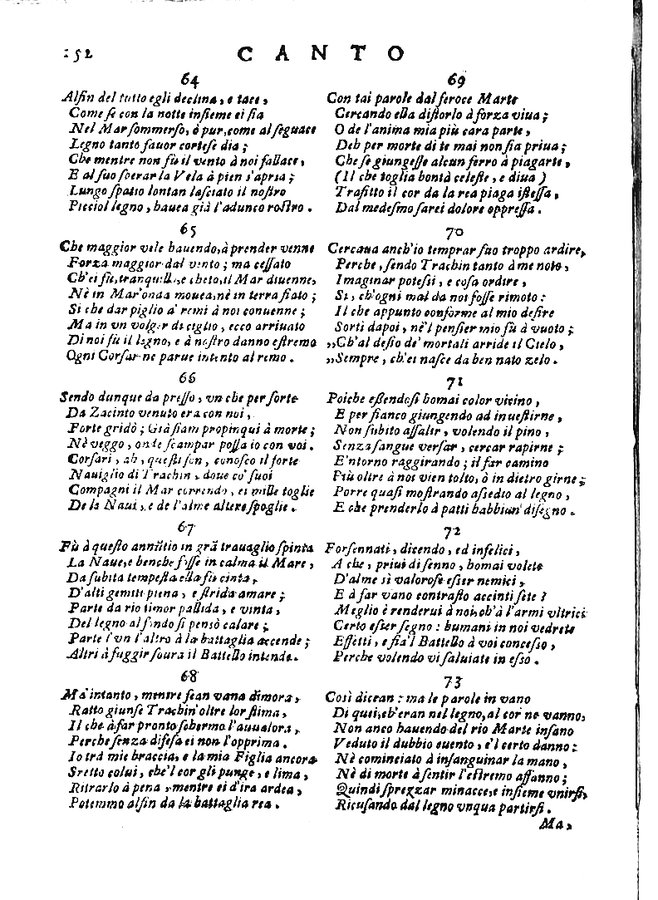 152
CANTO
64
Alfin del tutto egli declina, e tace,
Come se con la notte insieme ei sia
Nel Mar sommerso, ò pur, come al seguace
Legno tanto fauor cortese dia;
Che mentre non fù il vento à noi fallace,
E al suo sperar la Vela à pien s'apria;
Lungo spatio lontan lasciato il nostro
Picciol legno, hauea già l'adunco rostro.
65
Che maggior vele hauendo, à prender venne
Forza maggior dal vento; ma cessato
Ch'ei fù, tranquillo, e cheto, il Mar diuenne,
Nè in Mar'onda mouea, nè in terra fiato;
Sì che dar piglio a' remi à noi conuenne;
Ma in vn volger di ciglio, ecco arriuato
Di noi fù il legno, e à nostro danno estremo
Ogni Corsar ne parue intento al remo.
66
Sendo dunque da presso, vn che per sorte
Da Zacinto venuto era con noi,
Forte gridò; Già siam propinqui à morte;
Nè veggo, onde scampar possa io con voi.
Corsari, ah, questi son, conosco il forte
Nauiglio di Trachin, doue co' suoi
Compagni il Mar correndo, ei mille toglie
De la Naui, e de l'alme altere spoglie.
67
Fù à questo annũtio in grã trauaglio spinta
La Naue, e benche fosse in calma il Mare,
Da subita tempesta ella fù cinta,
D'alti gemiti piena, e strida amare;
Parte da rio timor pallida, e vinta,
Del legno al fondo si pensò calare;
Parte l'vn l'altro à la battaglia accende;
Altri à fuggir soura il Battello intende.
68
Ma intanto, mentre fean vana dimora,
Ratto giunse Trachin'oltre lor stima,
Il che à far pronto schermo l'auualora,
Perche senza difesa ei non l'opprima.
Io trà mie braccia, e la mia Figlia ancora
Stretto colui, che'l cor gli punge, e lima,
Ritrarlo à pena, mentre ei d'ira ardea,
Potemmo alfin da la battaglia rea.
69
Con tai parole dal feroce Marte
Cercando ella distorlo à forza viua;
O de l'anima mia più cara parte,
Deh per morte di te mai non sia priua;
Che se giungesse alcun ferro à piagarte,
(Il che toglia bontà celeste, e diua)
Trafitto il cor da la rea piaga istessa,
Dal medesmo sarei dolore oppressa.
70
Cercaua anch'io temprar suo troppo ardire,
Perche, sendo Trachin tanto à me noto,
Imaginar potessi, e cosa ordire,
Sì, ch'ogni mal da noi fosse rimoto:
Il che appunto conforme al mio desire
Sortì dapoi, nè'l pensier mio fù à vuoto;
„Ch'al desio de' mortali arride il Cielo,
„Sempre, ch'ei nasce da ben nato zelo.
71
Poiche essendosi homai color vicino,
E per fianco giungendo ad inuestirne,
Non subito assalir, volendo il pino,
Senza sangue versar, cercar rapirne;
E'ntorno raggirando; il far camino
Più oltre à noi vien tolto, ò in dietro girne;
Porre quasi mostrando assedio al legno,
E che prenderlo à patti habbian' disegno.
72
Forsennati, dicendo, ed infelici,
A che, priui di senno, homai volete
D'alme sì valorose esser nemici,
E à far vano contrasto accinti sete?
Meglio è renderui à noi, ch'à l'armi vltrici
Certo esser segno: humani in noi vedrete
Effetti, e fia'l Battello à voi concesso,
Perche volendo vi saluiate in esso.
73
Così dicean: ma le parole in vano
Di quei, ch'eran nel legno, al cor ne vanno,
Non anco hauendo del rio Marte insano
Veduto il dubbio euento, e'l certo danno:
Nè cominciato à insanguinar la mano,
Nè di morte à sentir l'estremo affanno;
Quindi sprezzar minacce, e insieme vnirsi,
Ricusando dal legno vnqua partirsi.
Ma,